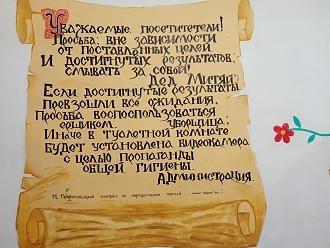 Уважаемые посетители!
Просьба, вне зависимости
от поставленных целей
и достигнутых результатов,
смывать за собой!
Дед Митяй.
Если достигнутые результаты
превзошли все ожидания,
просьба воспользоваться
ершиком. Уборщица.
Иначе в туалетной комнате
будет установлена видеокамера
с целью пропаганды
общей гигиены.
Администрация.
смотрите на корпоративном портале